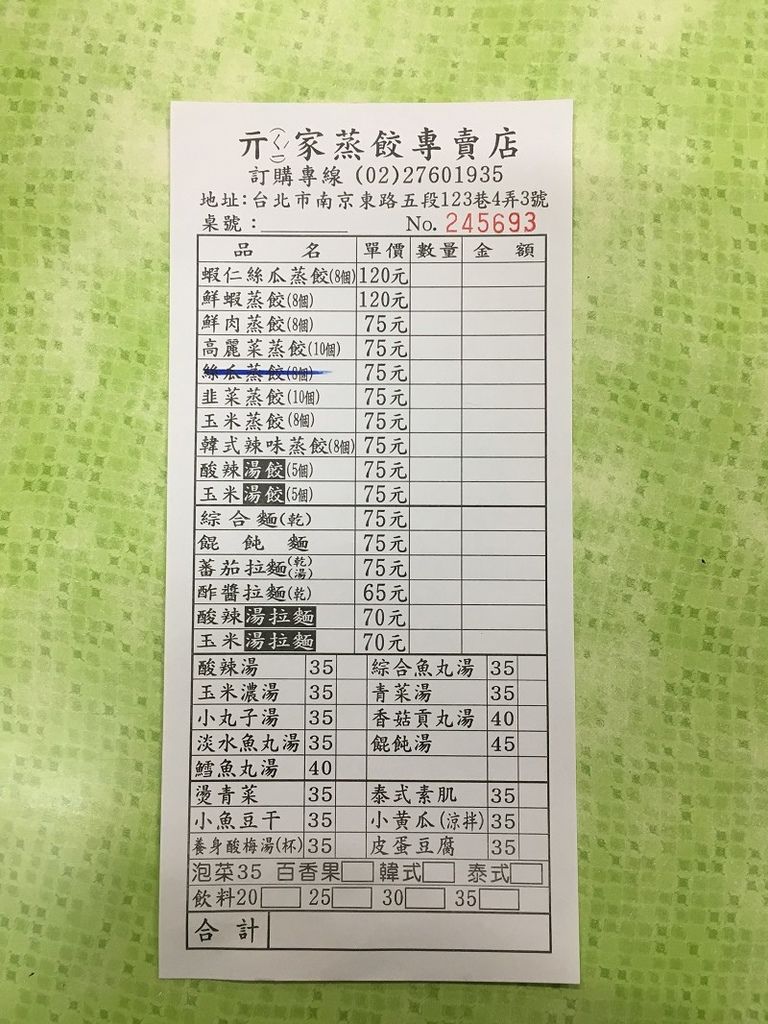 亓ㄑㄧˊ家蒸餃專賣店
訂購專線 (02)27601935
地址:台北市南京東路五段123巷4弄3號
桌號: No. 245693
品名 單價 數量 金額
蝦仁絲瓜蒸餃(8個) 120元
鮮蝦蒸餃(8個) 120元
鮮肉蒸餃(8個) 75元
高麗菜蒸餃(10個) 75元
絲瓜蒸餃(8個) 75元
韭菜蒸餃(10個) 75元
玉米蒸餃(8個) 75元
韓式辣味蒸餃(8個) 75元
酸辣湯餃(5個) 75元
玉米湯餃(5個) 75元
綜合麵(乾) 75元
餛飩麵 75元
蕃茄拉麵(乾)(湯) 75元
酢醬拉麵(乾) 65元
酸辣湯拉麵 70元
玉米湯拉麵 70元
酸辣湯 35 綜合魚丸湯 35
玉米濃湯 35 青菜湯 35
小丸子湯 35 香菇貢丸湯 40
淡水魚丸湯 35 餛飩湯 45
鱈魚丸湯 40
燙青菜 35 泰式素肌 35
小魚豆干 35 小黃瓜(涼拌) 35
養身酸梅湯(杯) 35 皮蛋豆腐 35
泡菜35 百香果 韓式 泰式
飲料20 25 30 35
合計